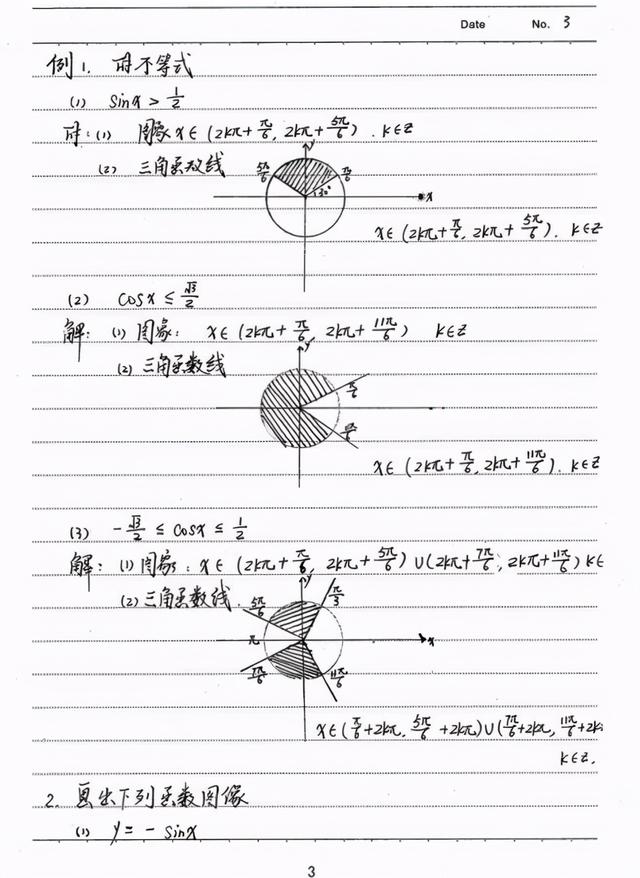 Date No. 3
例1. 解不等式
(1) sinx > 1/2
解: (1) 图象 x∈(2kπ+π/6, 2kπ+5π/6). k∈Z
(2) 三角函数线
y
5π/6 π/6
30°
x
x∈(2kπ+π/6, 2kπ+5π/6). k∈Z
(2) cosx ≤ √3/2
解: (1) 图象: x∈(2kπ+π/6, 2kπ+11π/6) k∈Z
(2) 三角函数线
y
π/6
x∈(2kπ+π/6, 2kπ+11π/6). k∈Z
(3) -√3/2 ≤ cosx ≤ 1/2
解: (1) 图象: x∈(2kπ+π/6, 2kπ+5π/6)∪(2kπ+7π/6, 2kπ+11π/6) k∈
(2) 三角函数线.
y
5π/6 π/3
π x
7π/6 11π/6
x∈(π/6+2kπ, 5π/6+2kπ)∪(7π/6+2kπ, 11π/6+2k
k∈Z.
2. 画出下列函数图像
(1) y = - sinx
3